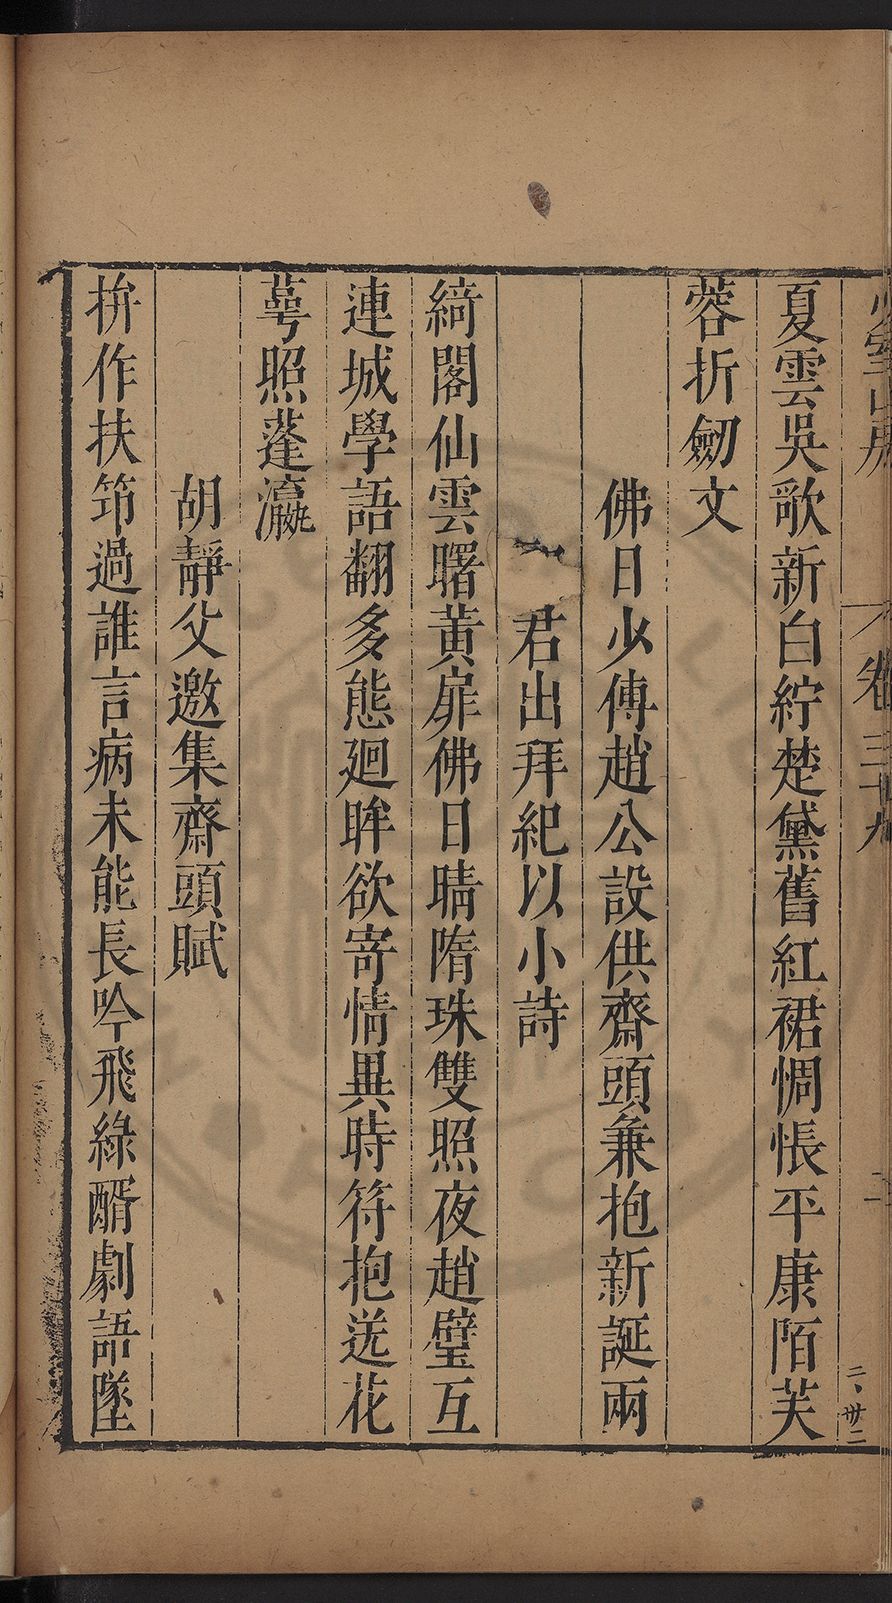 少室山房 卷三十九 二
二、卅二
夏雲吳歌新白紵楚黛舊紅裙惆悵平康陌芙
蓉折劒文
佛日少傅趙公設供齋頭兼抱新誕兩
君出拜紀以小詩
綺閣仙雲曙黃扉佛日晴隋珠雙照夜趙璧互
連城學語翻多態廻眸欲寄情異時符抱送花
萼照蓬瀛
胡靜父邀集齋頭賦
拚作扶筇過誰言病未能長吟飛綠醑劇語墜